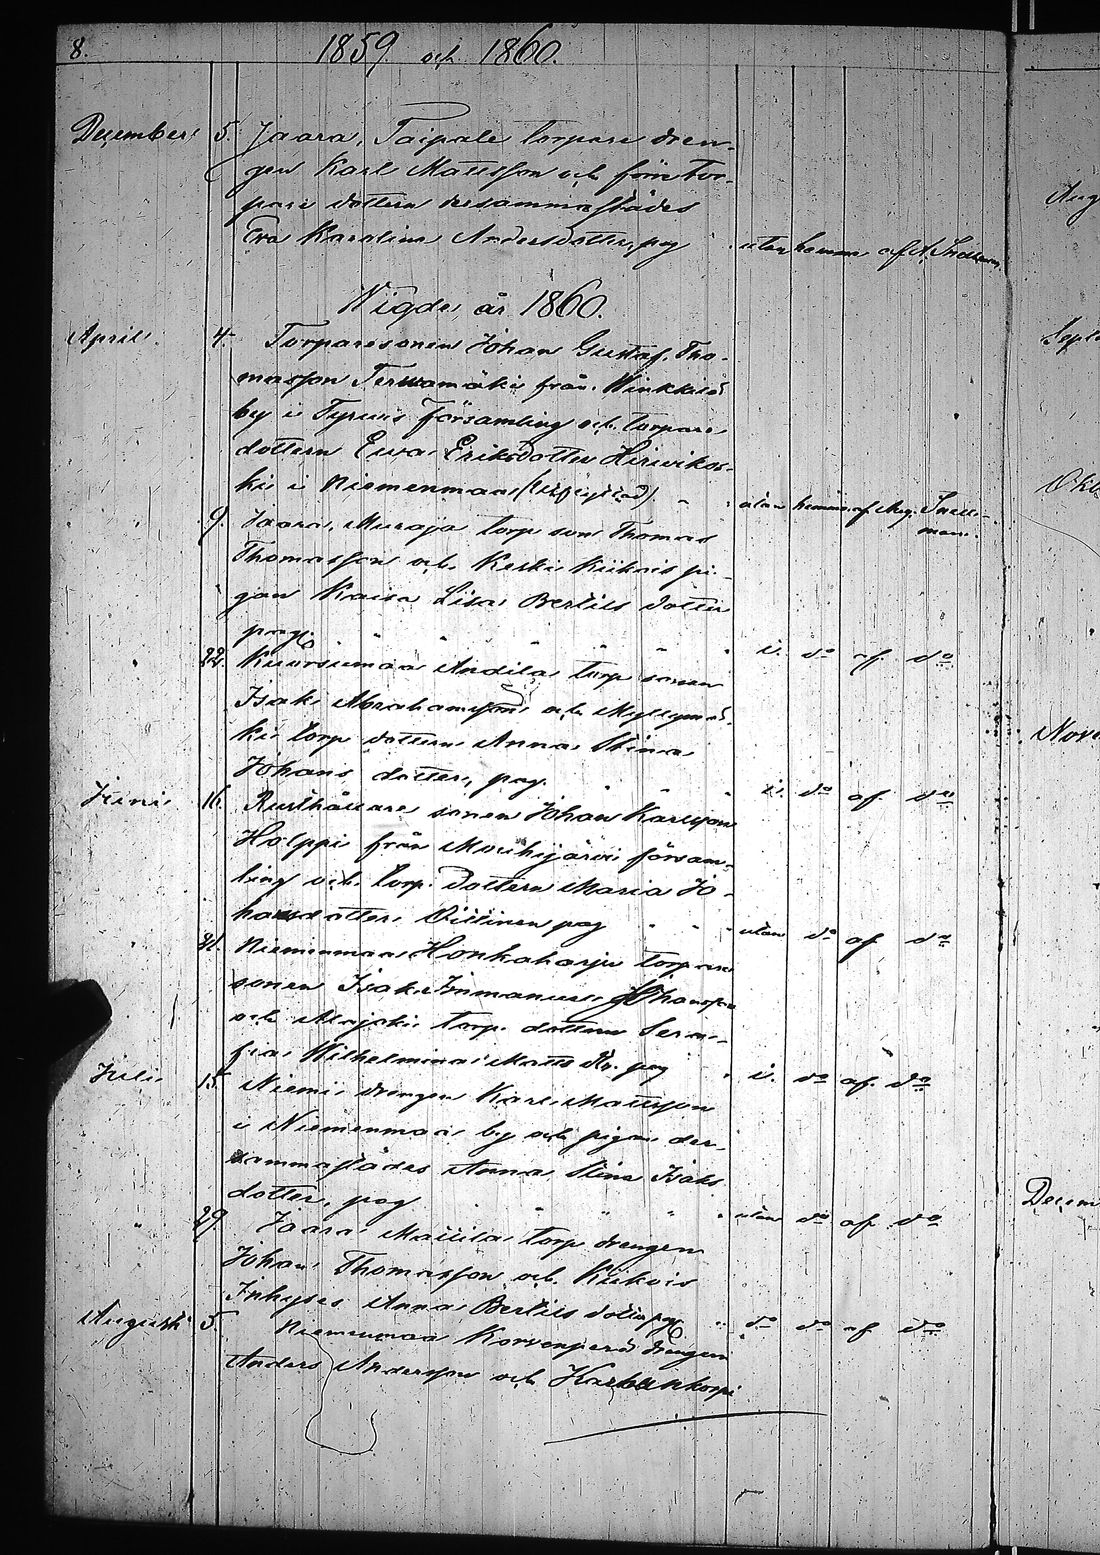 8. 1859 och 1860.
December 5. Jaara, Taipale torpare dren-
gen Karl Mattsson och förra tor-
pare dottern dersammastädes
Eva Karolina Andersdotter, pag utan hemm af A. Snellman
Wigde år 1860.
April 4. Torparesonen Johan Gustaf Tho-
masson Terwamäki från Winkkilä
by i Tyrwis församling och torpare
dottern Ewa Eriksdotter Hirwikos-
ki i Niemenmaa " utan hemm. af Mag. Snell-
man.
9. Jaara, Muraja torp son Thomas
Thomasson och Keski Kiikois pi-
gan Kaisa Lisa Bertils dotter
pag. " " " " " i. do af do
22. Kuorsumaa Andila torp sonen
Isak Abrahamsson och Myllymä-
ki torp dottern Anna Stina
Johans dotter, pag. " " " i. do af do
Juni 16. Rusthållare sonen Johan Karlsson
Holppi från Mouhijärvi försam-
ling och torp. dottern Maria Jo-
hansdotter Villinen pag " " " utan do af do
21. Niemenmaa Honkaharju torpare
sonen Isak Immanuel Johansson
och torp. dottern Sera-
fia Wilhelmina Matts dtr. pag " i. do af. do
Juli 15. Niemi drengen Karl Mattsson
i Niemenmaa by och pigan der-
sammastädes Anna Stina Isaks
dotter, pag " " " utan do af do
" 29. Jaara Mattila torp drengen
Johan Thomasson och Kiikois
Inhyses Anna Bertils dotter pag " do do af do
Augusti 5. Niemenmaa Korvenperä drengen
Anders Andersson och Karhunkorpi
Aug
Sept
Okt
Nove
Decem